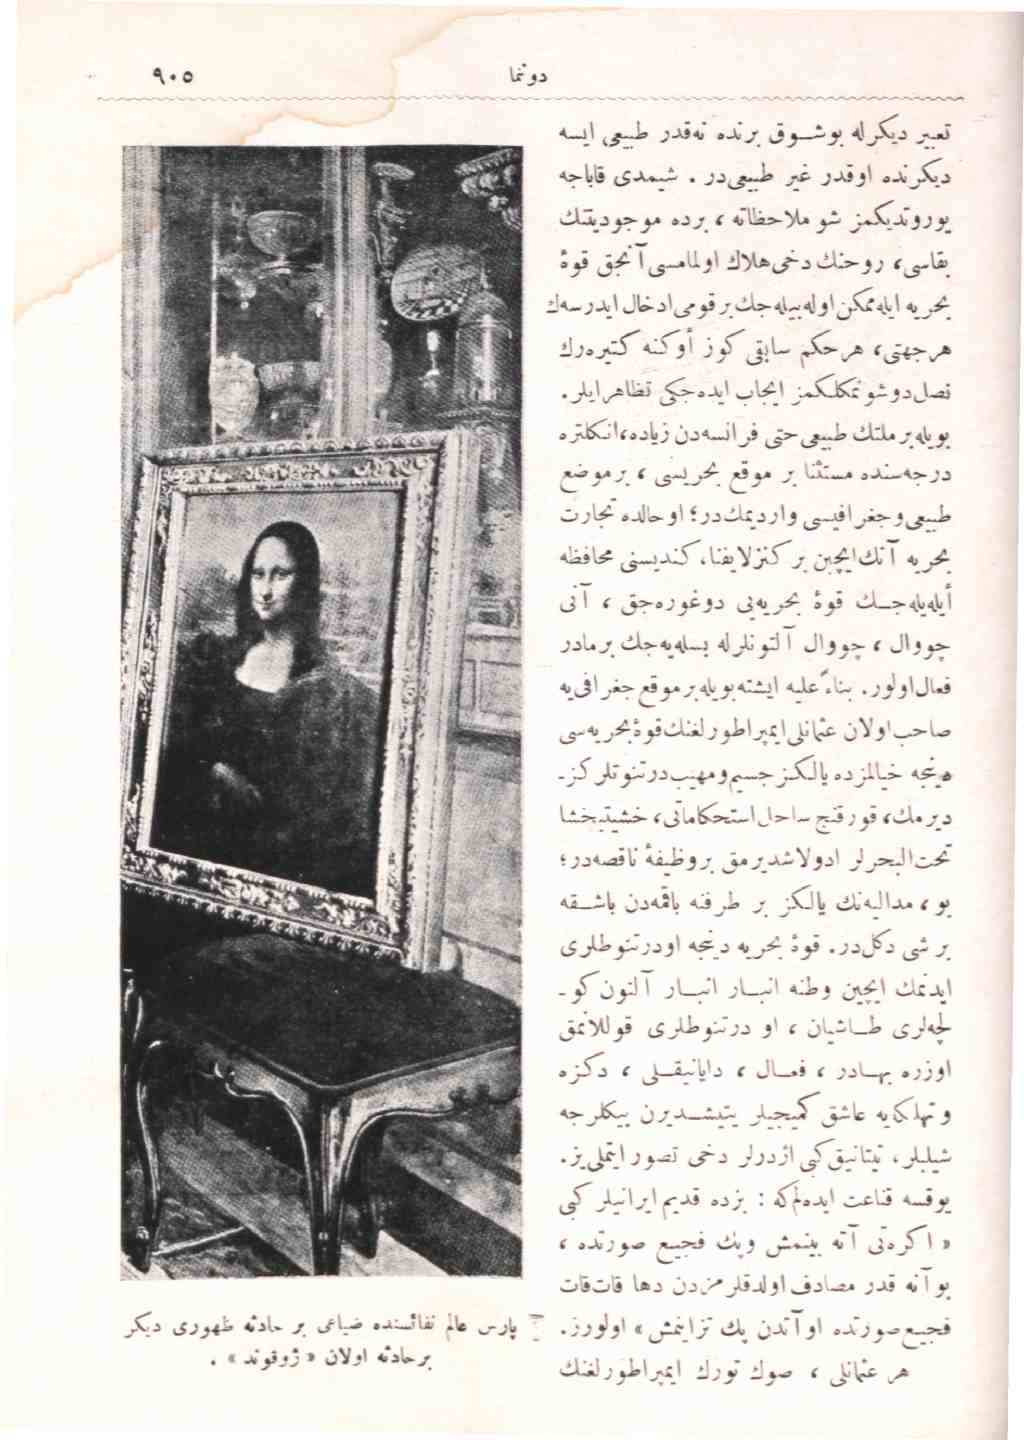 دوننما
٩٠٥
تعبیر دیكرله بوشــوق برنده نه‌قدر طبیعی ایسه
دیكرنده اوقدر غیر طبیعی‌در . شیمدی قاباجه
یوروتدیكمز شو ملاحظاته ، برده موجودیتنك
بقاسی، روحنك دخی هلاك اولمامسی آنجق قوۀ
بحریه ایله ممكن اوله‌بیله‌جك بر قومی ادخال ایدرسه‌ك
هرجهتی، هر حكم سابقی كوز أوكنه كتیره‌رك
نصل دوشونمكلكمز ایجاب ایده‌جكی تظاهر ایلر.
بویله بر ملتك طبیعی حتی فرانسه‌دن زیاده، انكلتره
درجه‌سنده مستثنا بر موقع بحریسی ، بر موضع
طبیعی و جغرافیسی وار دیمك‌در؛ او حالده تجارت
بحریه آنك ایچین بر كنز لایفنا، كندیسنی محافظه
أیله‌یله‌جــك قوۀ بحریه‌یی دوغوره‌جق ، آنی
چووال ، چووال آلتونلرله بسله‌یه‌جك بر مادر
فعال اولور. بناءً علیه ایشته بویله بر موقع جغرافی‌یه
صاحب اولان عثمانلی ایمپراطورلغنك قوۀ بحریه‌سی
دینجه خیالمزده یالكز جسیم و مهیب درتنوتلر كز-
دیرمك، قورقنج ساحل استحكاماتی، خشیتبخشا
تحت‌البحرلر ادولاشدیرمق بر وظیفۀ ناقصه‌در؛
بو، مدالیه‌نك یالكز بر طرفنه باقمه‌دن باشــقه
بر شی دكل‌در. قوۀ بحریه دینجه او درتنوطلری
ایدنمك ایچین وطنه انبــار انبــار آلتون كو-
لچه‌لری طــاشیان ، او درتنوطلری قوللانمق
اوزره بهــادر ، فعــال ، دایانیقــلی ، دكزه
و تهلكه‌یه عاشق كمیجیلر یتیشــدیرن بیكلرجه
شیلبلر، تیتانیق كبی اژدرلر دخی تصور ایتملی‌یز.
یوقسه قناعت ایده‌لم كه : بزده قدیم ایرانیلر كبی
« اكره‌تی آته بینمش وپك فجیــع صورتده ،
بو آنه قدر مصادف اولدقلرمزدن دها قات‌قات
فجیــع صورتده او آتدن پك تز اینمش » اولورز.
هر عثمانلی ، صوك تورك ایمپراطورلغنك
پارس عالم نفائسنده ضیاعی بر حادثه ظهوری دیكر
بر حادثه اولان « ژوقوند » .